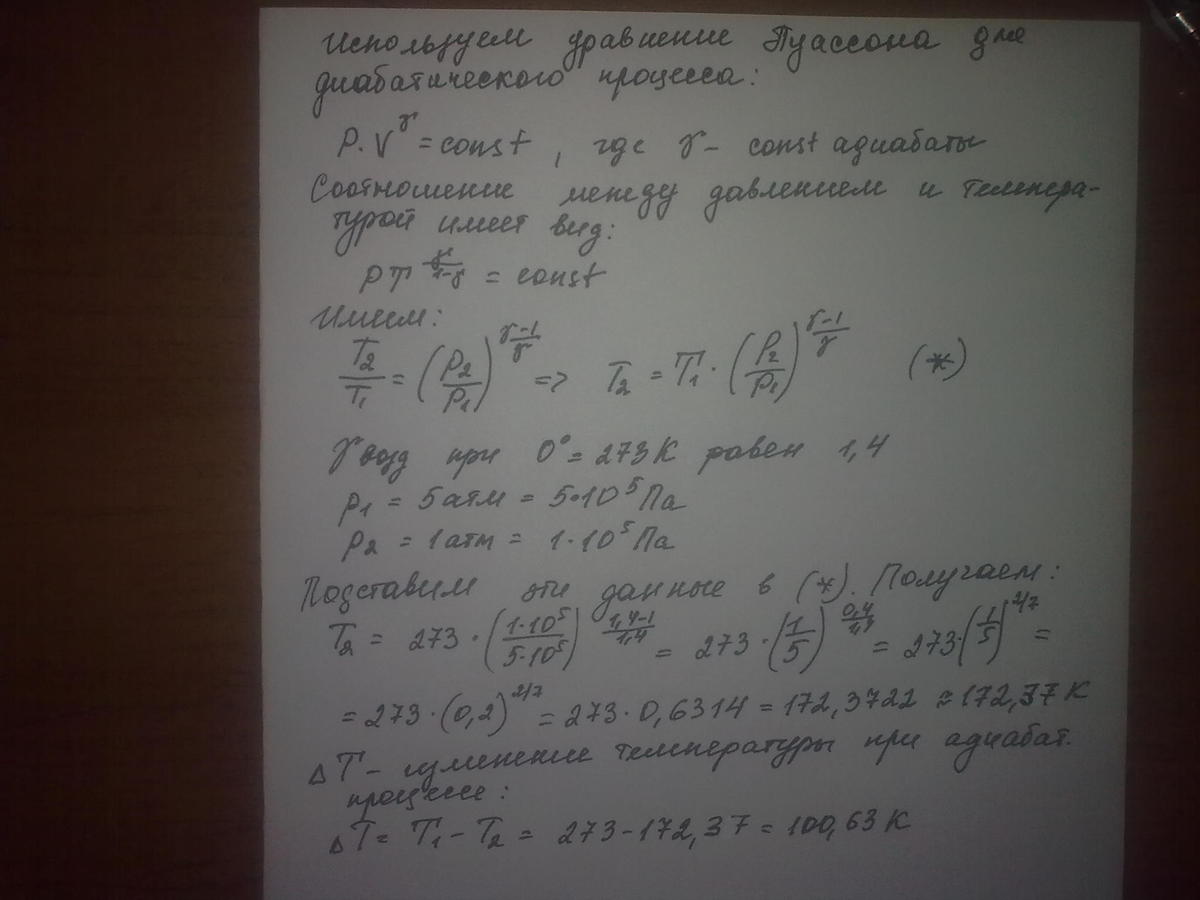 Используем уравнение Пуассона для
диабатического процесса:
P·V^γ = const, где γ – const адиабаты
Соотношение между давлением и темпера-
турой имеет вид:
PT^(γ/(1-γ)) = const
Имеем:
T₂/T₁ = (P₂/P₁)^((γ-1)/γ) => T₂ = T₁·(P₂/P₁)^((γ-1)/γ) (*)
γ возд при 0° = 273К равен 1,4
p₁ = 5 атм = 5·10⁵ Па
p₂ = 1 атм = 1·10⁵ Па
Подставим эти данные в (*). Получаем:
T₂ = 273·(1·10⁵/5·10⁵)^((1,4-1)/1,4) = 273·(1/5)^(0,4/1,4) = 273·(1/5)^(2/7) =
= 273·(0,2)^(2/7) = 273·0,6314 = 172,3722 ≈ 172,37 К
ΔT – изменение температуры при адиабат.
процессе:
ΔT = T₁ – T₂ = 273 – 172,37 = 100,63 К